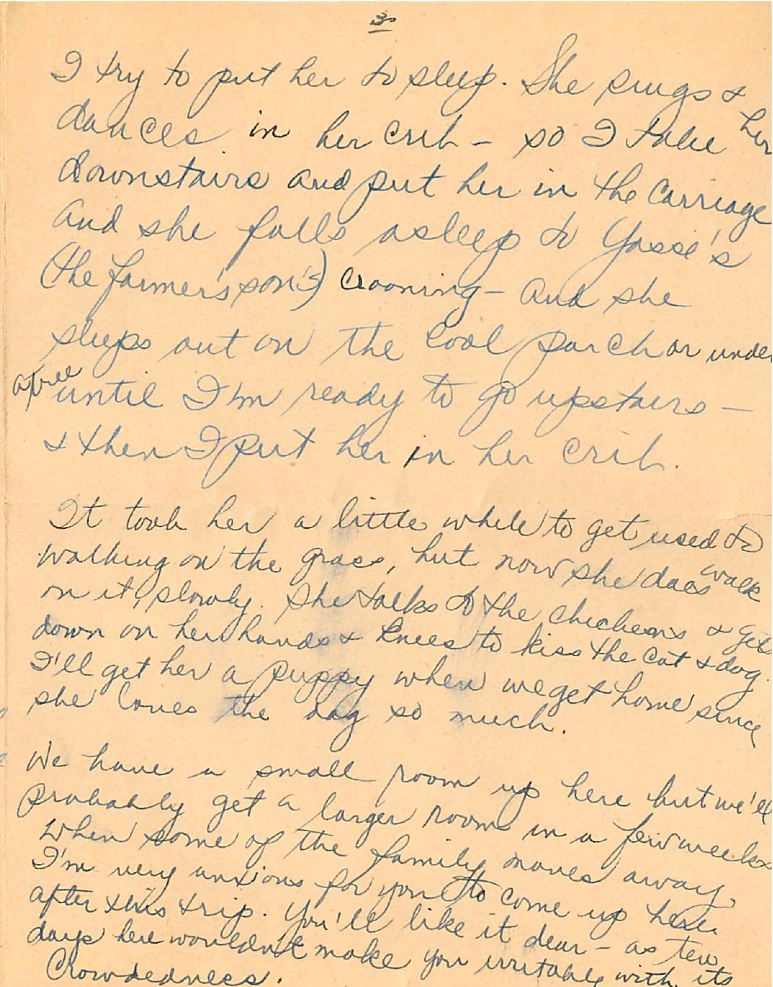 3.
I try to put her to sleep. She sings &
dances in her crib – so I take her
downstairs and put her in the carriage
and she falls asleep to Yasse's
(the farmer's son's) crooning – and she
sleeps out on the cool porch or under
a tree until I'm ready to go upstairs –
& then I put her in her crib.
It took her a little while to get used to
walking on the grass, but now she does walk
on it, slowly. She talks to the chickens & gets
down on her hands & knees to kiss the cat & dog.
I'll get her a puppy when we get home since
she loves the dog so much.
We have a small room up here but we'll
probably get a larger room in a few weeks
when some of the family moves away.
I'm very anxious for you to come up here
after this trip. You'll like it dear – as few
days here wouldn't make you irritable with its
Crowdedness.